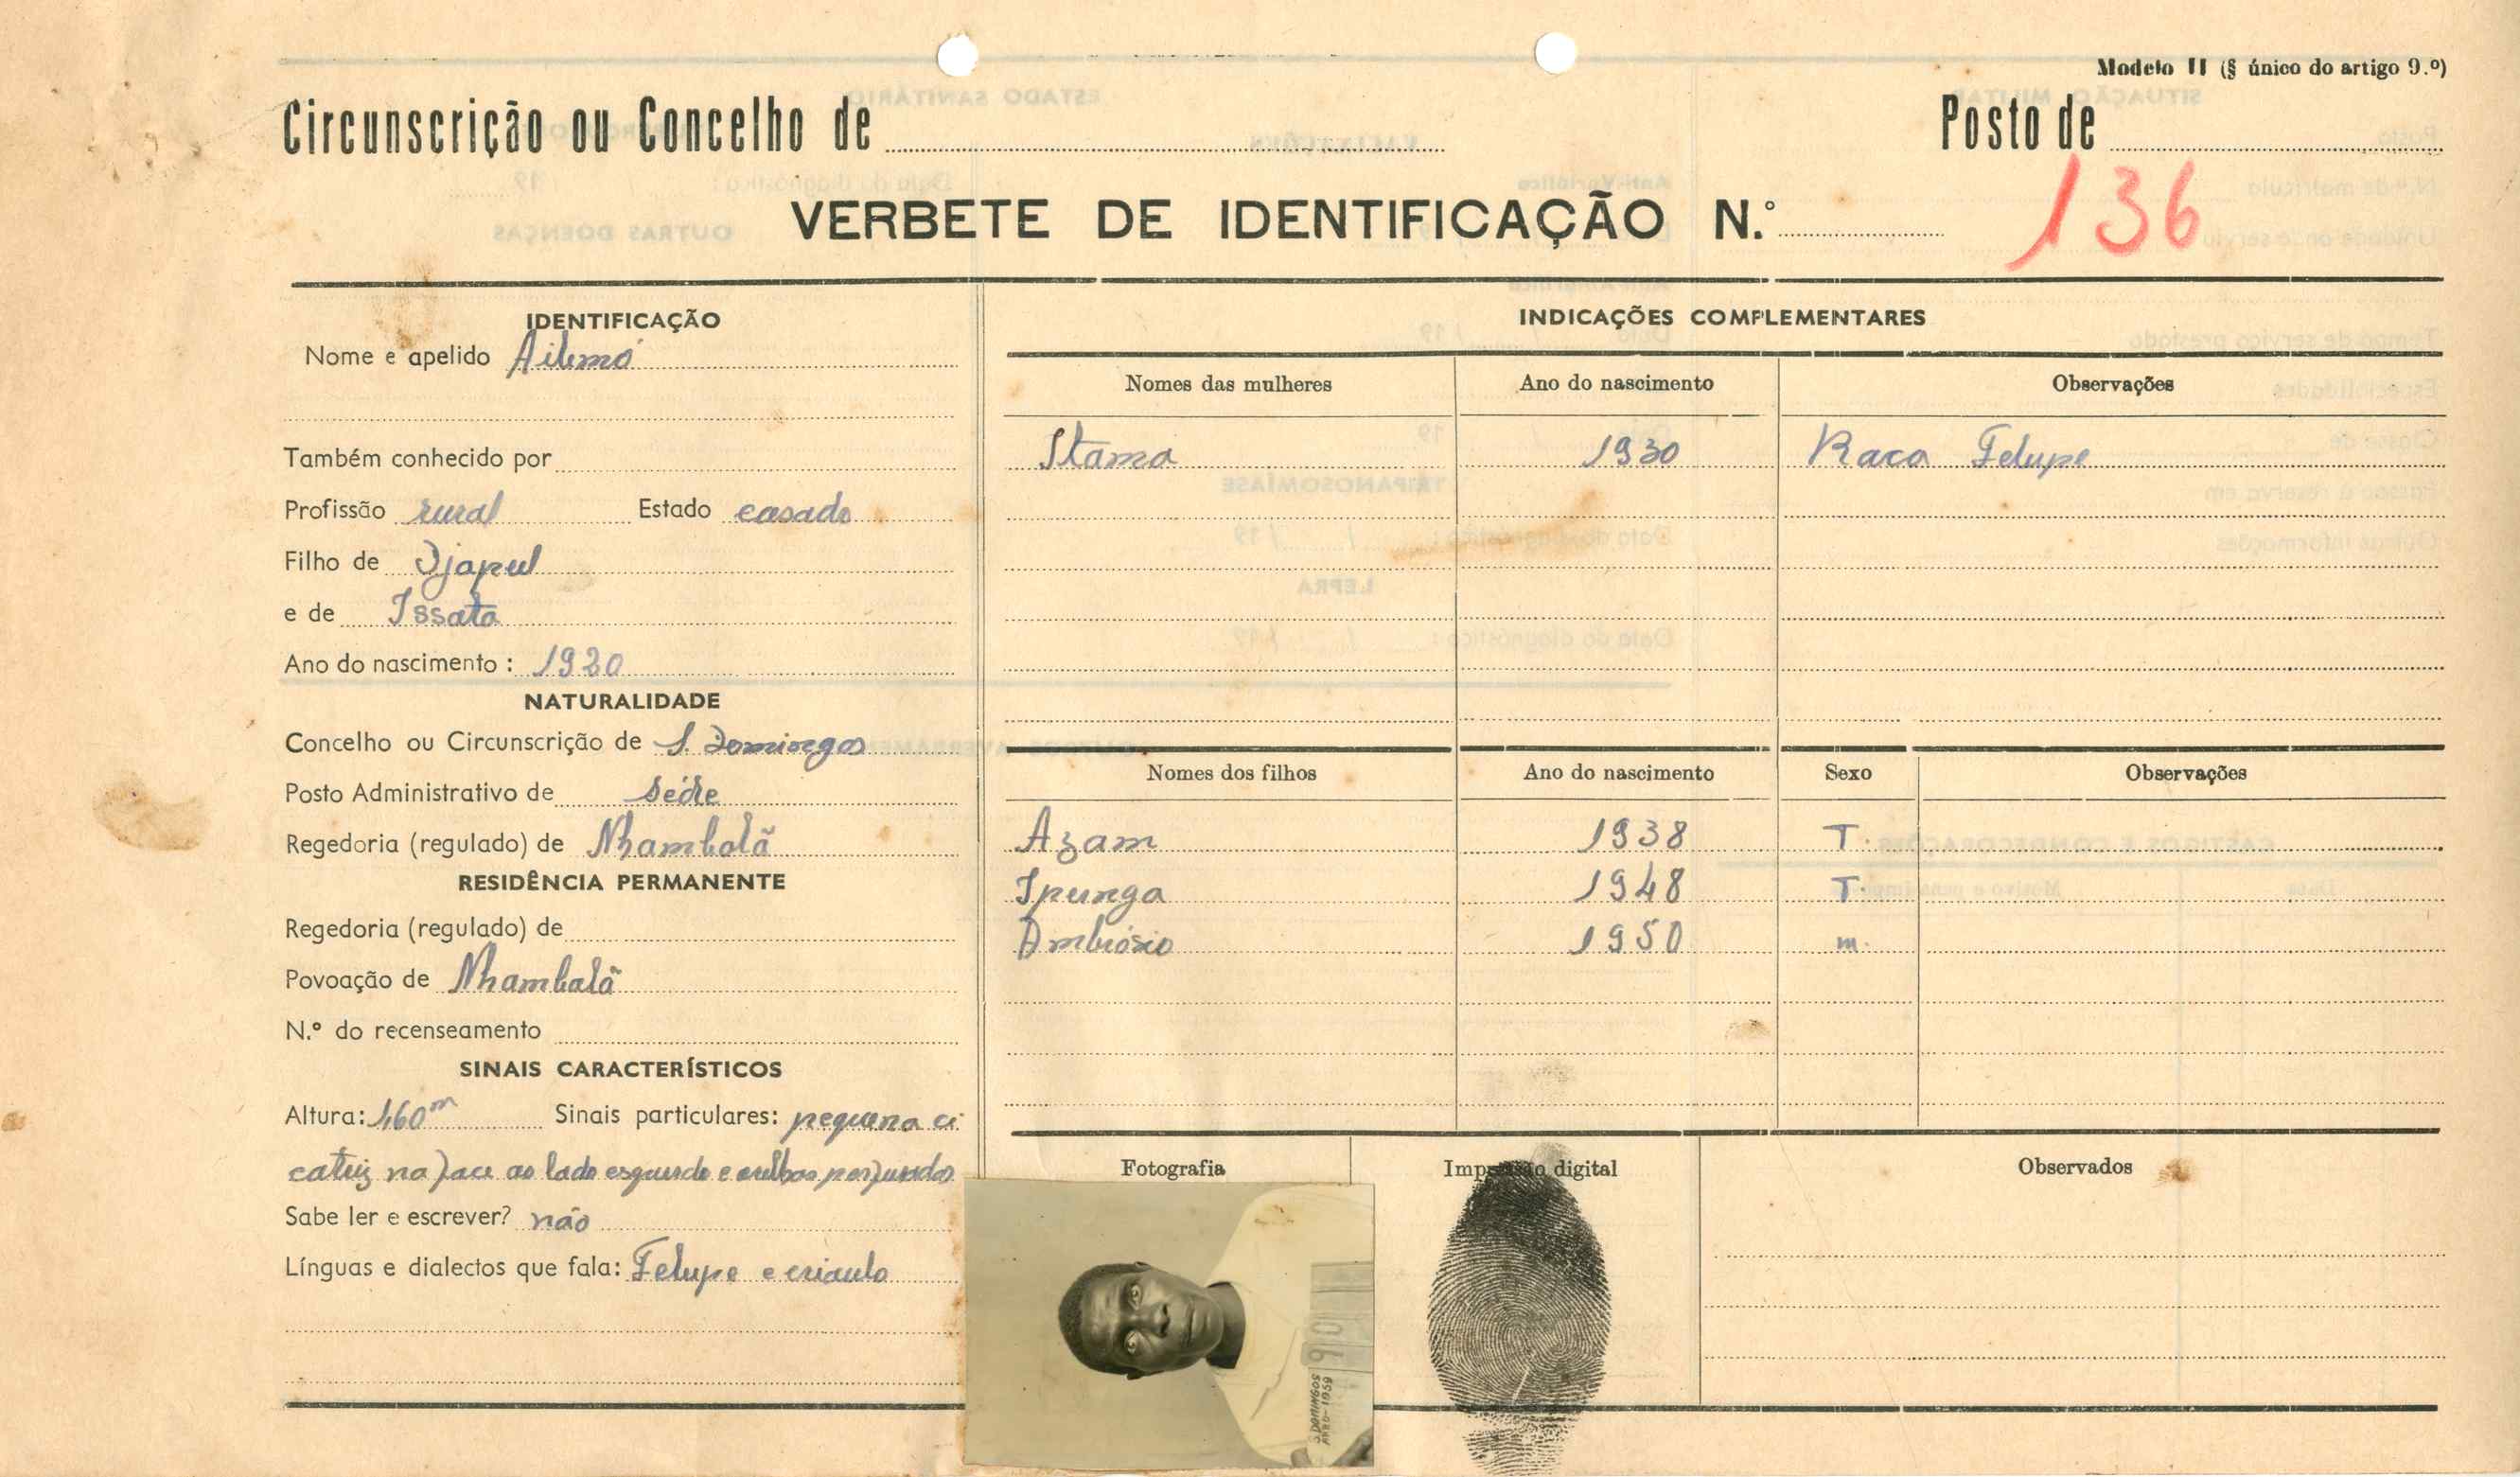 Modelo II (§ único do artigo 9.º)
Circunscrição ou Concelho de
Posto de
VERBETE DE IDENTIFICAÇÃO N.º
136
IDENTIFICAÇÃO
Nome e apelido
Também conhecido por
Profissão rural Estado casado
Filho de Djapul
e de Issata
Ano do nascimento: 1920
NATURALIDADE
Concelho ou Circunscrição de S. Domingos
Posto Administrativo de Séde
Regedoria (regulado) de Nhambalã
RESIDÊNCIA PERMANENTE
Regedoria (regulado) de
Povoação de Nhambalã
N.º do recenseamento
SINAIS CARACTERÍSTICOS
Altura: 1,60m Sinais particulares: pequena ci
catriz na face ao lado esquerdo e orelhas perfuradas
Sabe ler e escrever? não
Línguas e dialectos que fala: Felupe e crioulo
INDICAÇÕES COMPLEMENTARES
Nomes das mulheres Ano do nascimento Observações
Itama 1930 Raca Felupe
Nomes dos filhos Ano do nascimento Sexo Observações
Azam 1938 F.
Ipunga 1948 F.
Ambrósio 1950 m.
Fotografia Impressão digital Observados
S. DOMINGOS
ANO-1959